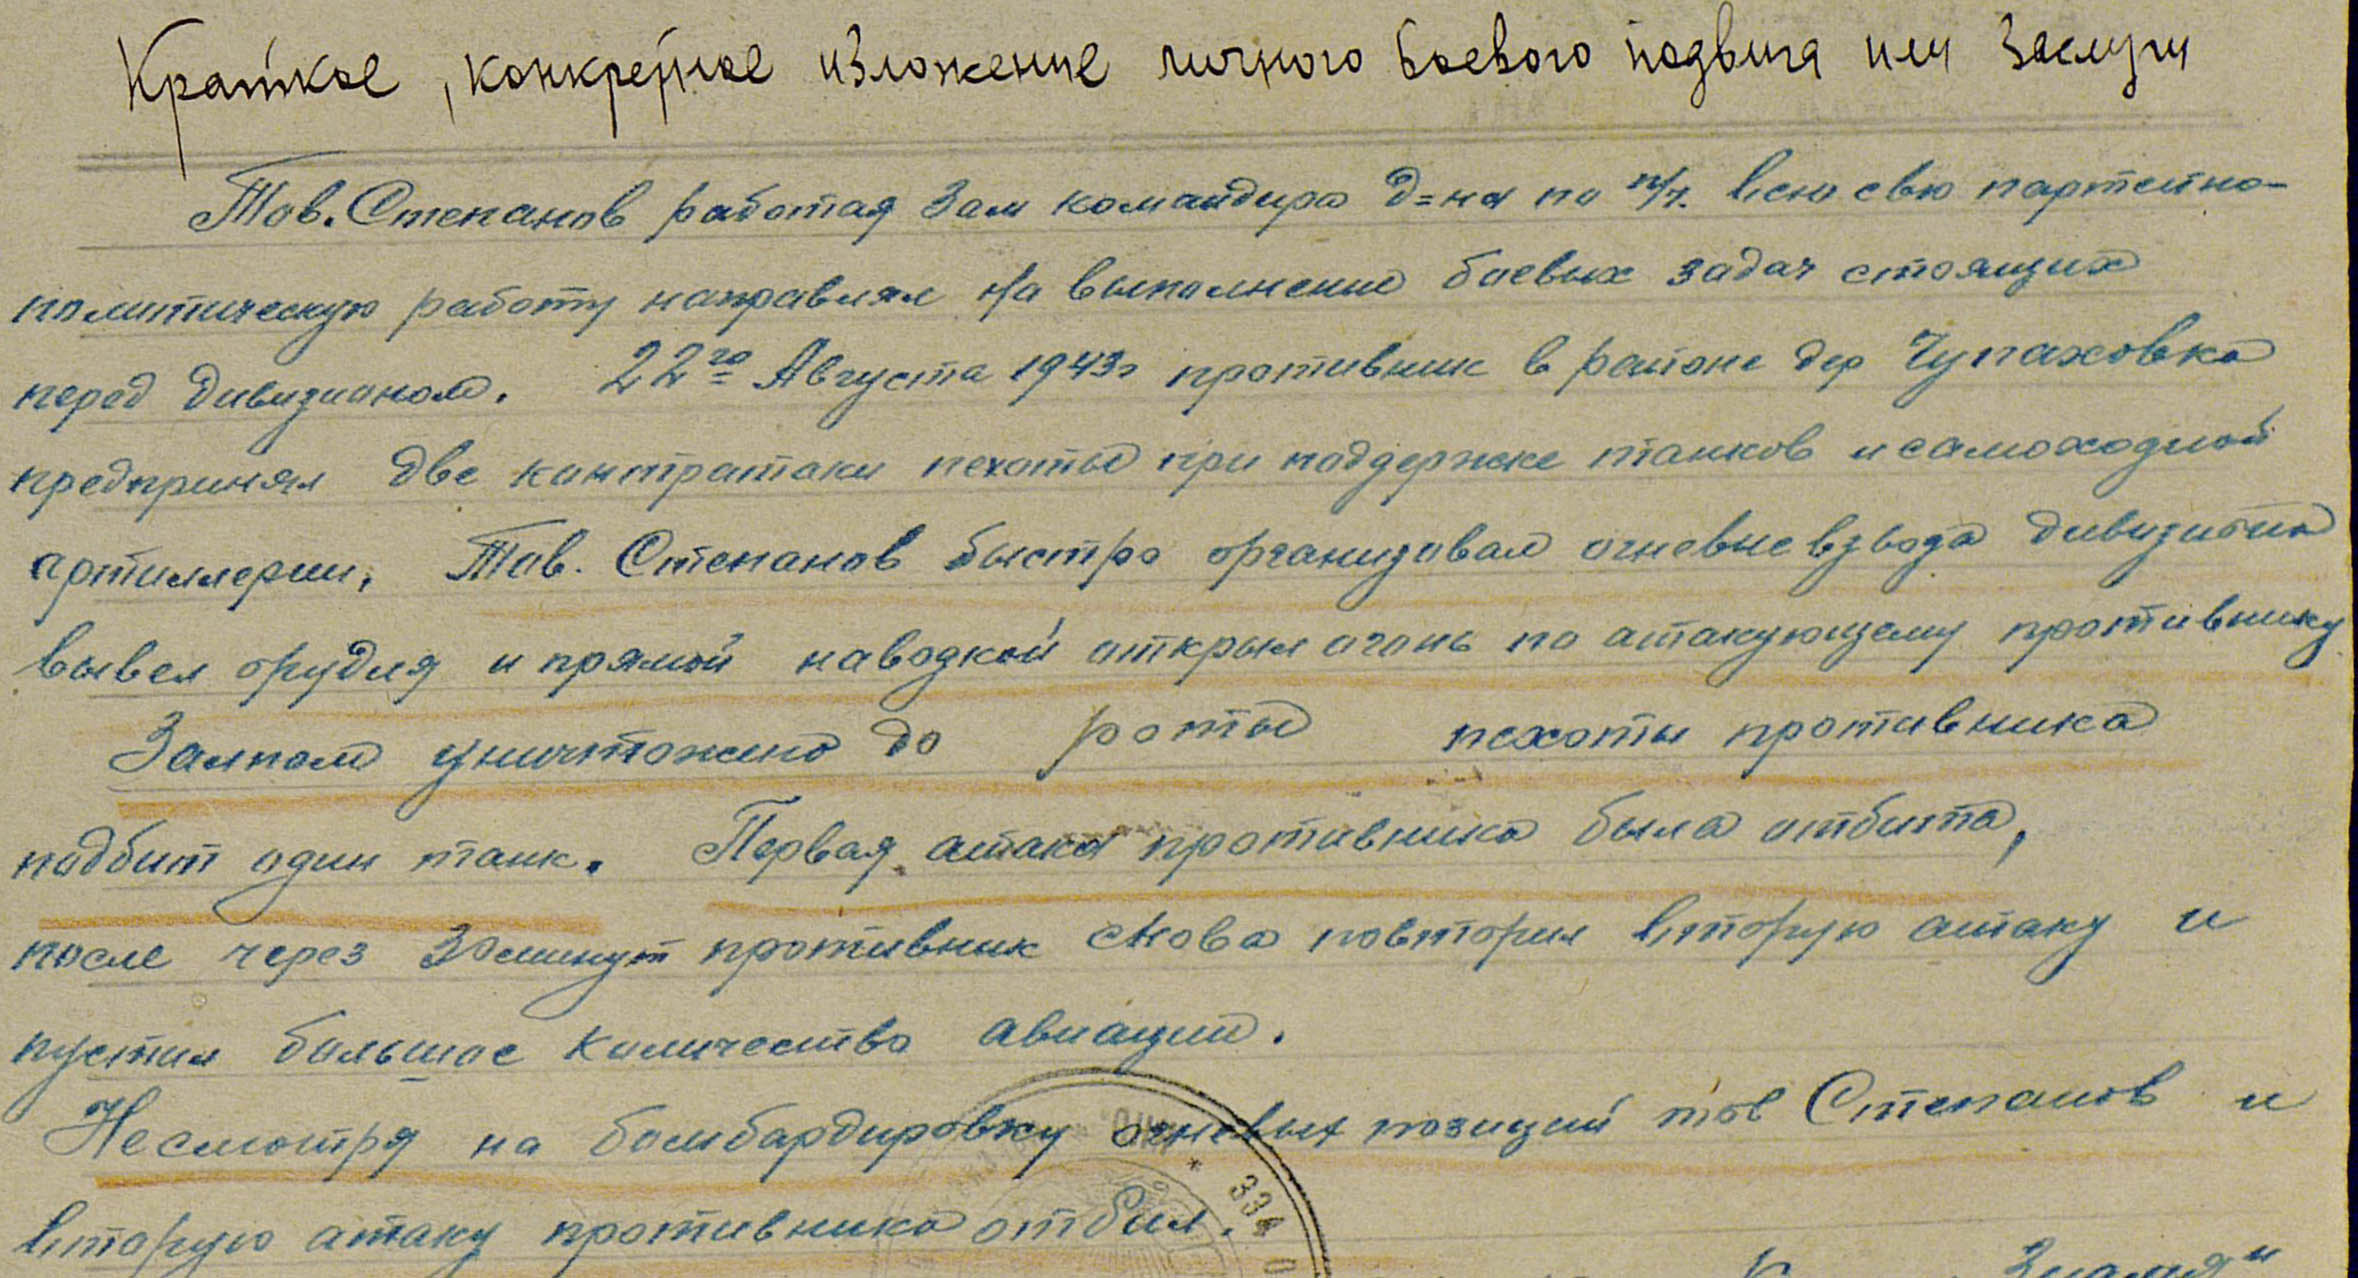 Краткое, конкретное изложение личного боевого подвига или заслуги
Тов. Степанов работая зам командира д=на по п/ч. всю свю партейно-
политическую работу направлял на выполнение боевых задач стоящих
перед дивизионом. 22го Августа 1943г противник в районе дер Чупаховка
предпринял две контратаки пехоты при поддержке танков и самоходной
артиллерии, Тов. Степанов быстро организовал огневые взвода дивизиона
вывел орудия и прямой наводкой открыл огонь по атакующему противнику
Залпом уничтожено до роты пехоты противника
подбит один танк. Первая атака противника была отбита,
после через 30 минут противник снова повторил вторую атаку и
пустил большое количество авиации.
Несмотря на бомбардировку огневых позиций тов Степанов и
вторую атаку противника отбил.
* 334 0
Знамя"